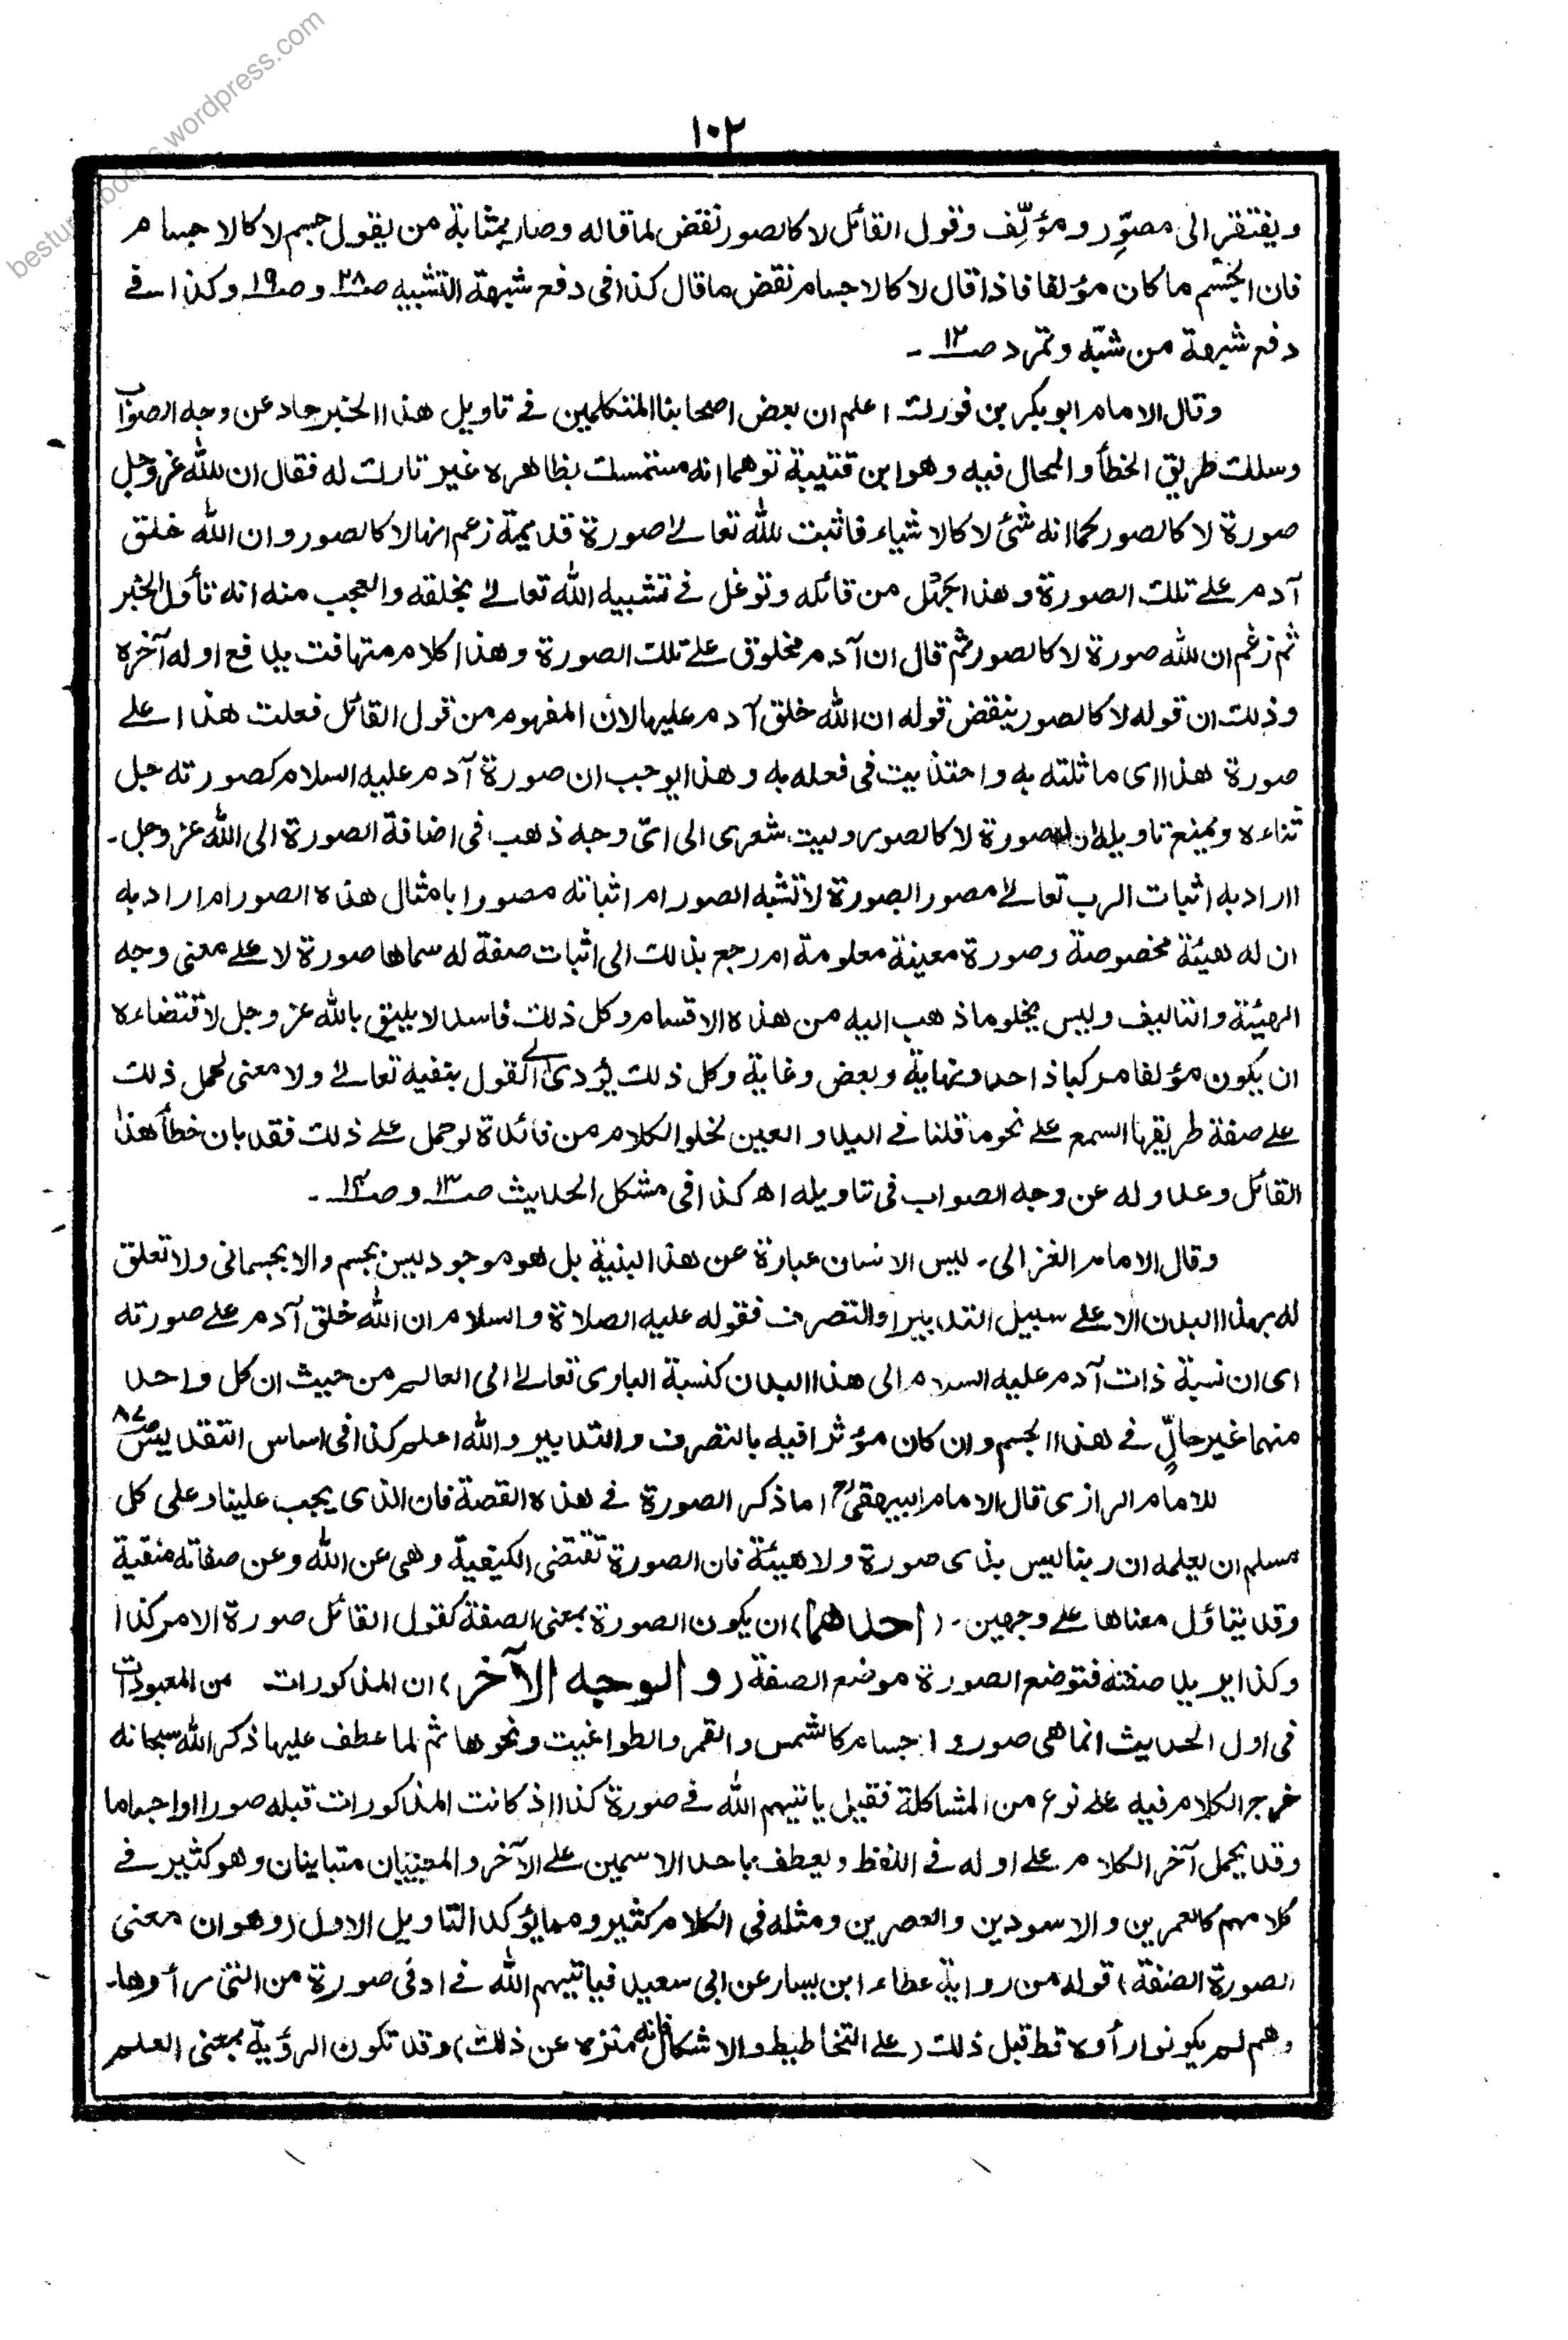 besturdubooks.wordpress.com
١٠٢
ويفتقر الى مصوِّر و مؤلِّف وقول القائل لا كالصور نقض لما قاله وصار بمثابة من يقول جسم لا كالاجسام
فان الجسم ما كان مؤلفا فاذا قال لا كالاجسام نقض ما قال كذا فى دفع شبهة التشبيه ص٢٨ و ص١٩ وكذا فے
دفع شبهة من شبّه وتمرد ص١٢ -
وقال الامام ابوبكر بن فورك اعلم ان بعض اصحابنا المتكلمين فے تاويل هذا الخبر حاد عن وجه الصواب
وسلك طريق الخطأ و المحال فيه وهو ابن قتيبة توهما انه مستمسك بظاهره غير تارك له فقال ان لله عز وجل
صورة لا كالصور كما انه شئ لا كالاشياء فاثبت لله تعالے صورة قديمة زعم انها لا كالصور وان الله خلق
آدم علے تلك الصورة و هذا جهل من قائله وتوغل فے تشبيه الله تعالے بخلقه والعجب منه انه تأول الخبر
ثم زعم ان لله صورة لا كالصور ثم قال ان آدم مخلوق علے تلك الصورة وهذا كلام متهافت يدافع اوله آخره
وذلك ان قوله لا كالصور ينقض قوله ان الله خلق آدم عليها لان المفهوم من قول القائل فعلت هذا علے
صورة هذا اى ماثلته به و احتذيت فى فعله به و هذا يوجب ان صورة آدم عليه السلام كصورته جل
ثناءه ويمنع تاويله ان له صورة لا كالصور وليت شعرى الى اىّ وجه ذهب فى اضافة الصورة الى الله عز وجل -
ااراد به اثبات الرب تعالے مصورا بصورة لا تشبه الصور ام اثباته مصورا بامثال هذه الصور ام اراد به
ان له هيئة مخصوصة وصورة معينة معلومة ام رجع بذالك الى اثبات صفة له سماها صورة لا علے معنى وجه
الهيئة و التاليف وليس يخلو ما ذهب اليه من هذه الاقسام وكل ذلك فاسد لا يليق بالله عز وجل لاقتضاءه
ان يكون مؤلفا مركبا ذا حد ونهاية وبعض وغاية وكل ذلك يؤدى الى القول بنفيه تعالے ولا معنى لحمل ذلك
علے صفة طريقها السمع علے نحو ما قلنا فے اليد و العين لخلو الكلام من فائدة لو حمل علے ذلك فقد بان خطأ هذا
القائل وعدوله عن وجه الصواب فى تاويله اه كذا فى مشكل الحديث ص١٣ و ص١٤ -
وقال الامام الغزالى - ليس الانسان عبارة عن هذا البنية بل هو موجود ليس بجسم والا بجسمانى ولا تعلق
له بهذا البدن الا علے سبيل التدبير او التصرف فقوله عليه الصلاة والسلام ان الله خلق آدم علے صورته
اى ان نسبة ذات آدم عليه السلام الى هذا البدن كنسبة البارى تعالے الى العالم من حيث ان كل واحد
منهما غير حالٍّ فے هذا الجسم وان كان مؤثرا فيه بالتصرف و التدبير والله اعلم كذا فى اساس التقديس ص٨٧
للامام الرازى قال الامام البيهقىؒ اما ذكر الصورة فے هذه القصة فان الذى يجب علينا وعلى كل
مسلم ان يعلمه ان ربنا ليس بذى صورة ولا هيئة فان الصورة تقتضى الكيفية وهى عن الله وعن صفاته منفية
وقد يتأول معناها علے وجهين - (احدهما) ان يكون الصورة بمعنى الصفة كقول القائل صورة الامر كذا
وكذا يريد صفته فتوضع الصورة موضع الصفة (و الوجه الآخر) ان المذكورات من المعبودات
فى اول الحديث انما هى صور و اجسام كالشمس والقمر والطواغيت ونحوها ثم لما عطف عليها ذكر الله سبحانه
خرج الكلام فيه علے نوع من المشاكلة فقيل ياتيهم الله فے صورة كذا اذ كانت المذكورات قبله صورا واجساما
وقد يحمل آخر الكلام علے اوله فے اللفظ ويعطف باحد الاسمين علے الآخر والمعنيان متباينان وهو كثير فے
كلامهم كالعمرين و الاسودين والعصرين ومثله فى الكلام كثير ومما يؤكد التاويل الاول (وهو ان معنى
الصورة الصفة) قوله من رواية عطاء ابن يسار عن ابى سعيد فياتيهم الله فے ادنى صورة من التى رأوها -
وهم لم يكونوا رأوه قط قبل ذلك (علے التخاطيط والاشكال فانه منزه عن ذلك) وقد تكون الرؤية بمعنى العلم